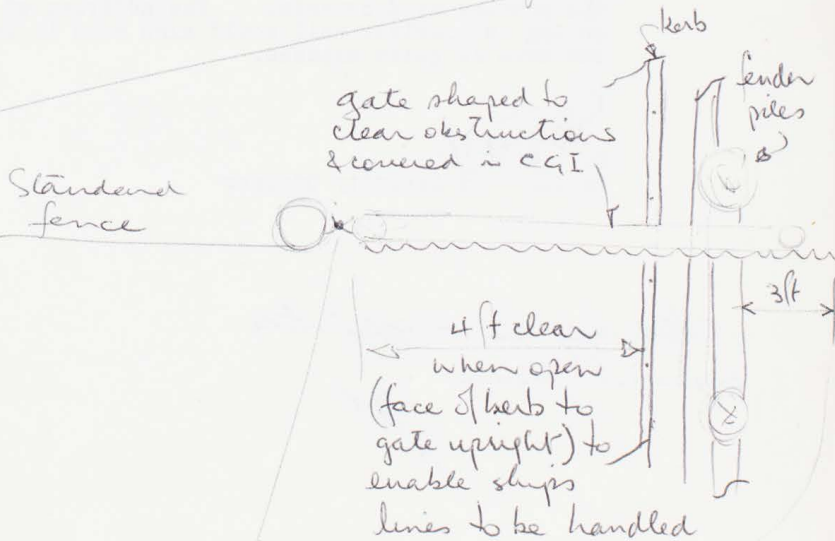 kerb
fender
piles
gate shaped to
clear obstructions
& covered in CGI
Standard
fence
3ft
4ft clear
when open
(face of kerb to
gate upright) to
enable ships
lines to be handled